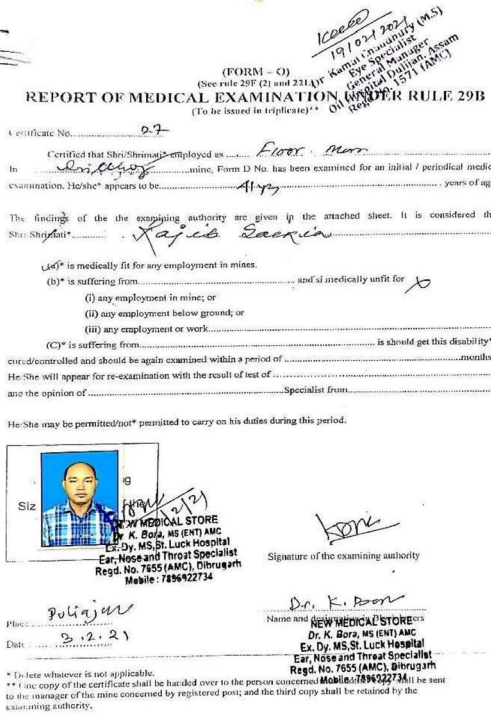 19/02/2021
Dr Kamal Chaudhury (M.S)
Eye Specialist
General Manager
Oil Hospital Duliajan, Assam
Regd No. 1571 (AMC)
(FORM – O)
(See rule 29F (2) und 221A)
REPORT OF MEDICAL EXAMINATION UNDER RULE 29B
(To be issued in triplicate)**
Certificate No. 07
Certified that Shri/Shrimati* employed as ........ Floor Man
In ........ mine, Form D No. has been examined for an initial / periodical medic
examination. He/she* appears to be ........ 41 yrs ........ years of ag
The findings of the the examining authority are given in the attached sheet. It is considered th
Shri Shrimati* ........ Rajib Saikia
(a)* is medically fit for any employment in mines.
(b)* is suffering from ........ and si medically unfit for
(i) any employment in mine; or
(ii) any employment below ground; or
(iii) any employment or work ........
(C)* is suffering from ........ is should get this disability*
cured/controlled and should be again examined within a period of ........ months
He/She will appear for re-examination with the result of test of ........
and the opinion of ........ Specialist from ........
He/She may be permitted/not* permitted to carry on his duties during this period.
Siz
NEW MEDICAL STORE
Dr K. Bora, MS (ENT) AMC
Ex. Dy. MS, St. Luck Hospital
Ear, Nose and Throat Specialist
Regd. No. 7655 (AMC), Dibrugarh
Mobile : 7896922734
Signature of the examining authority
Dr. K. Bora
Place : Duliajan
Name and
NEW MEDICAL STORE
Date : 3.2.21
Dr. K. Bora, MS (ENT) AMC
Ex. Dy. MS, St. Luck Hospital
Ear, Nose and Throat Specialist
Regd. No. 7655 (AMC), Dibrugarh
Mobile : 7896922734
* Delete whatever is not applicable.
** One copy of the certificate shall be handed over to the person concerned shall be sent
to the manager of the mine concerned by registered post; and the third copy shall be retained by the
examining authority.